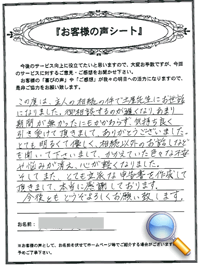 『お客様の声シート』
今後のサービス向上に役立てたいと思いますので、大変お手数ですが、今回
のサービスに対するご意見・ご感想をお聞かせ下さい。
お客様の「喜びの声」や「ご感想」が我々の明日への活力になりますので、
是非ご協力をお願い致します。
この度は、主人の相続の件で大変お世話
になりました。御相談するのが遅くなり、あまり
時間が無かったにもかかわらず、気持ち良く
引き受けて頂きまして、ありがとうございました。
とても明るくて優しく、相続以外のお話しなど
も聞いて下さいまして、かかえていた色々な不安
や悩みが消え、心が軽くなりました。
そしてまた、とても立派な申告書を作成して
頂きまして、本当に感謝しております。
今後ともどうぞよろしくお願い致します。
お名前:
※お客様の声として、お名前を伏せてホームページ等でご紹介する場合がございます。
予めご了承下さい。